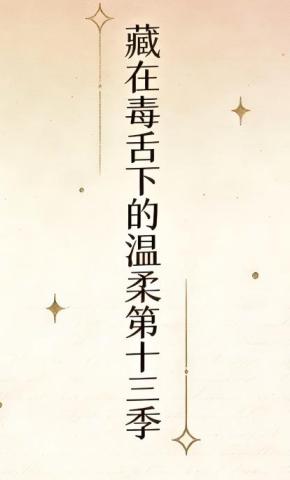 藏在毒舌下的温柔第十三季